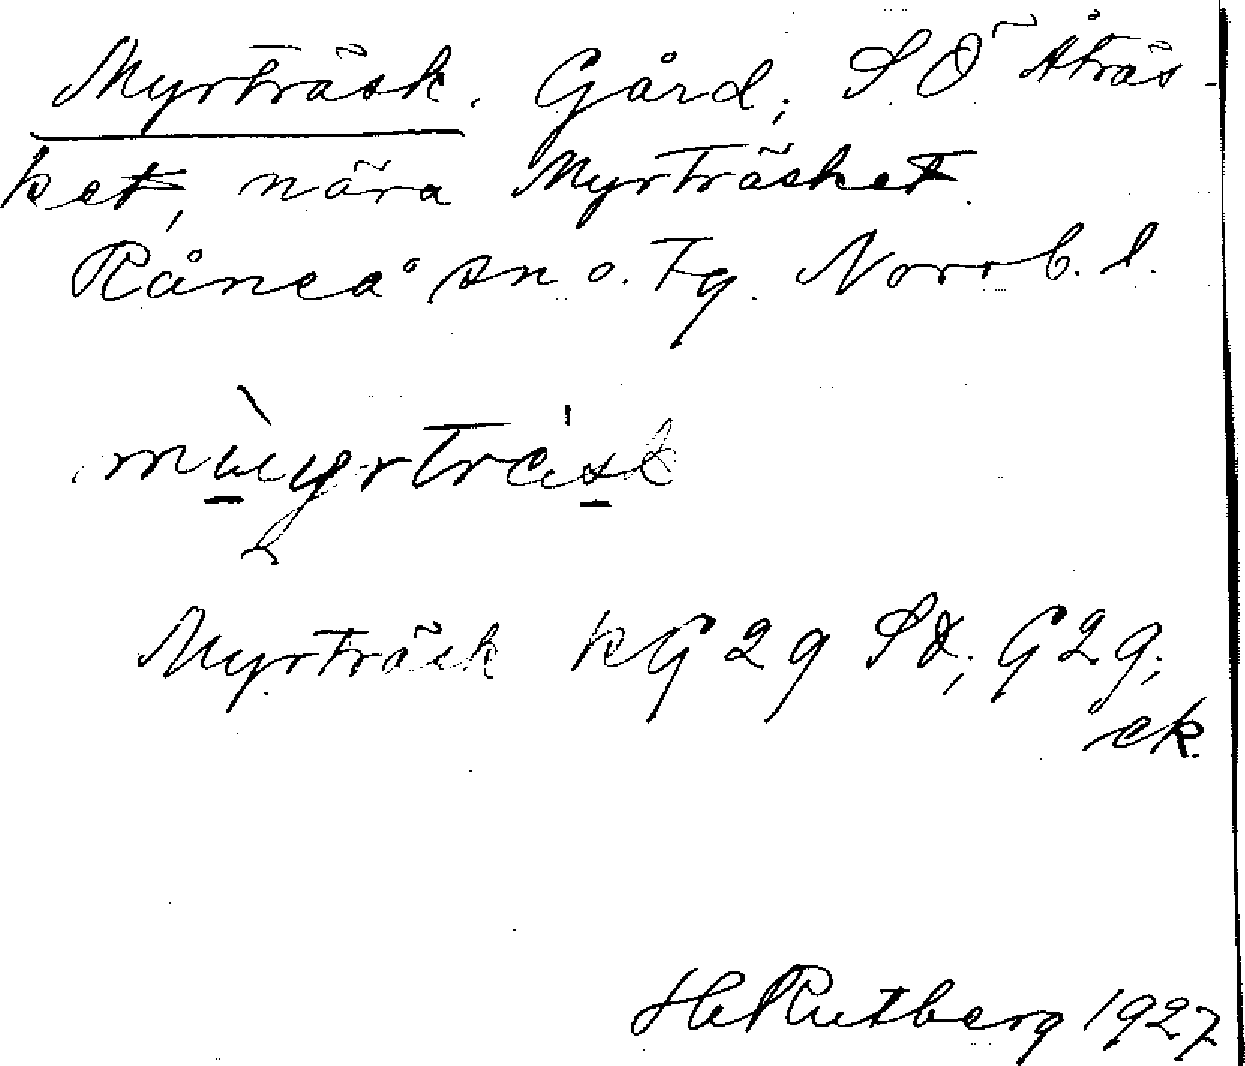 Myrträsk. Gård, S.Ö Åträs-
ket, nära Myrträsket.
Råneå sn o. Tg. Norrb. l.
Myrträsk kG 2 g SÖ; G 2 g;
ek.
Hl Rutberg 1927